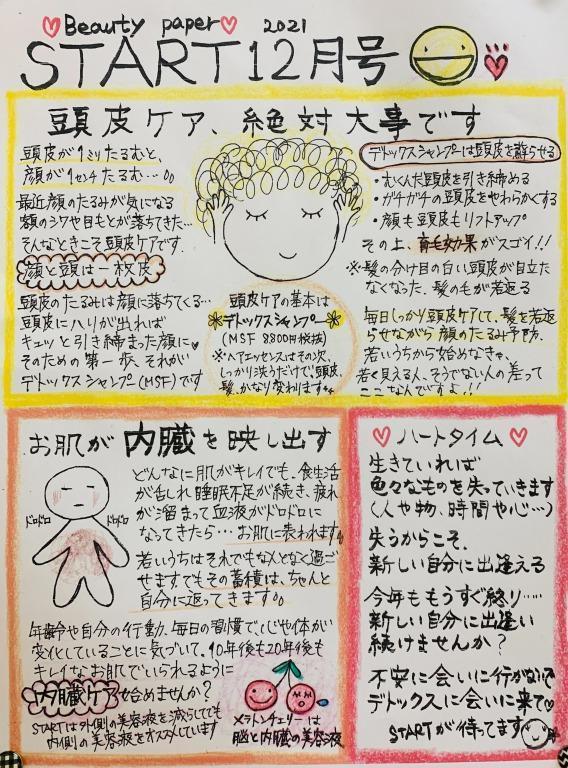 Beauty paper 2021
START12月号
頭皮ケア、絶対大事です
頭皮が1ミリたるむと、
顔が1センチたるむ…。。
最近顔のたるみが気になる
額のシワや目もとが落ちてきた…
そんなときこそ頭皮ケアです
顔と頭は一枚皮
頭皮のたるみは顔に落ちてくる…
頭皮にハリが出れば
キュッと引き締まった顔に♥
そのための第一歩、それが
デトックスシャンプー(MSF)です
頭皮ケアの基本は
デトックスシャンプー
(MSF 8800円税抜)
※ヘアエッセンスはその次、
しっかり洗うだけで、頭皮、
髪、かなり変わります
デトックスシャンプーは頭皮を蘇らせる
・むくんだ頭皮を引き締める
・ガチガチの頭皮をやわらかくする
・顔も頭皮もリフトアップ
その上、育毛効果がスゴイ!!
※髪の分け目の白い頭皮が目立た
なくなった、髪の毛が若返る
毎日しっかり頭皮ケアして、髪を若返
らせながら顔のたるみ予防、
若いうちから始めなきゃ、
若く見える人、そうでない人の差って
ここなんですよ!!
お肌が内臓を映し出す
ドロドロ
ドロドロ
どんなに肌がキレイでも、食生活
が乱れ睡眠不足が続き、疲れ
が溜まって血液がドロドロに
なってきたら…お肌に表われます。
若いうちはそれでもなんとなく過ご
せますでもその蓄積は、ちゃんと
自分に返ってきます。。
年齢や自分の行動、毎日の習慣で、心や体が
変化していることに気づいて、10年後も20年後も
キレイなお肌でいられるように
内臓ケアを始めませんか?
STARTは外側の美容液を減らしてでも
内側の美容液をオススメしています
メラトンチェリーは
脳と内臓の美容液
♡ハートタイム♡
生きていれば
色々なものを失っていきます
(人や物、時間や心…)
失うからこそ、
新しい自分に出逢える
今年ももうすぐ終り……
新しい自分に出逢い
続けませんか?
不安に会いに行かないで
デトックスに会いに来て♥
STARTが待ってます